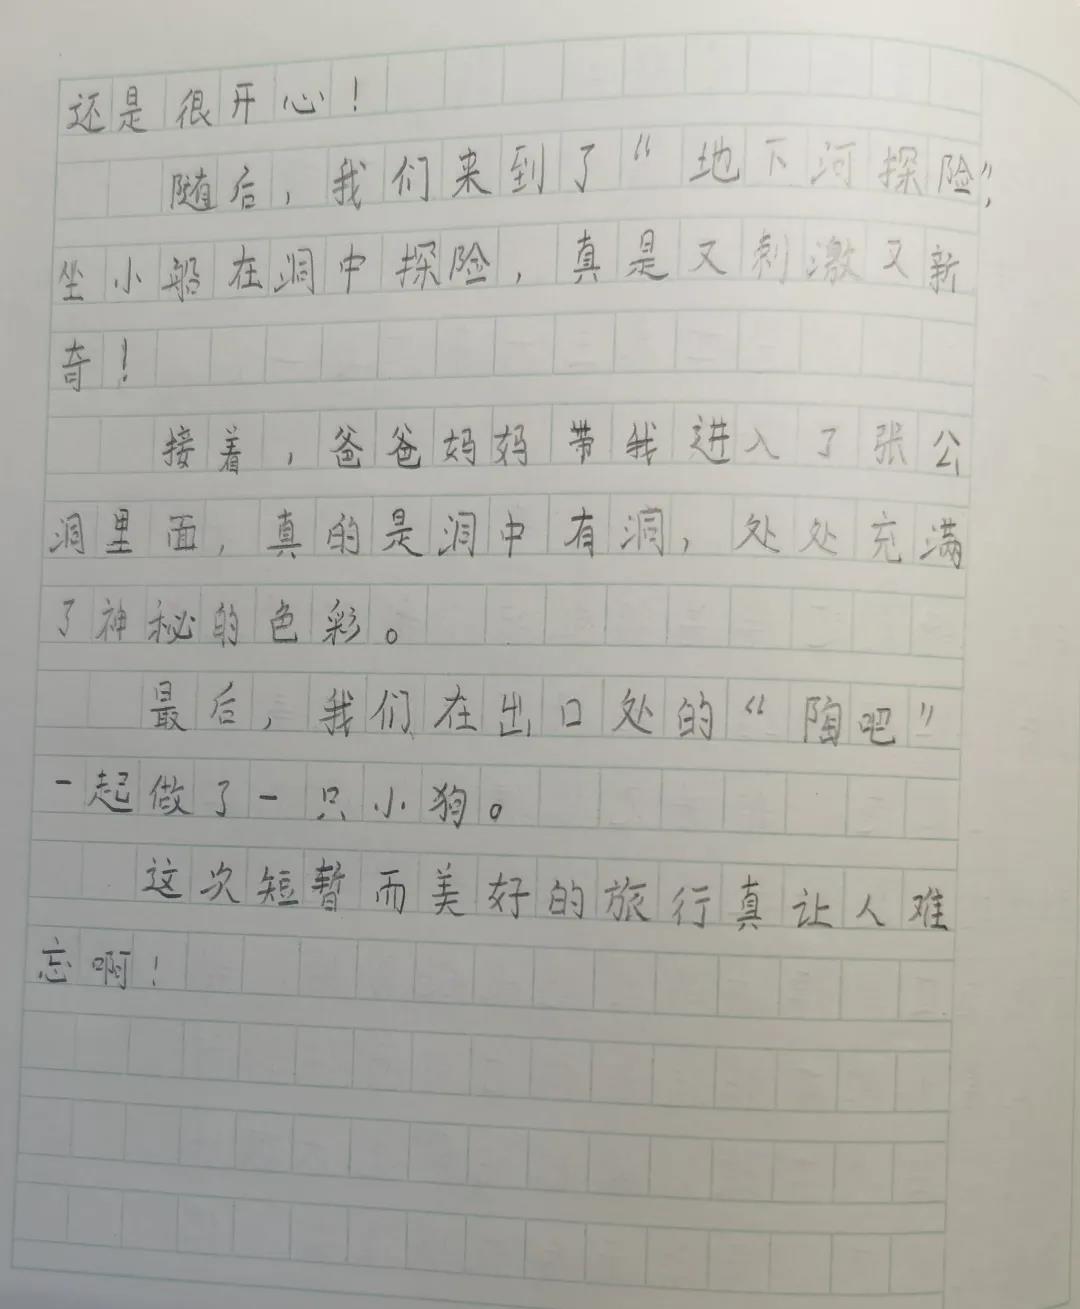 还是很开心！
随后，我们来到了“地下河探险”，
坐小船在洞中探险，真是又刺激又新
奇！
接着，爸爸妈妈带我进入了张公
洞里面，真的是洞中有洞，处处充满
了神秘的色彩。
最后，我们在出口处的“陶吧”
一起做了一只小狗。
这次短暂而美好的旅行真让人难
忘啊！